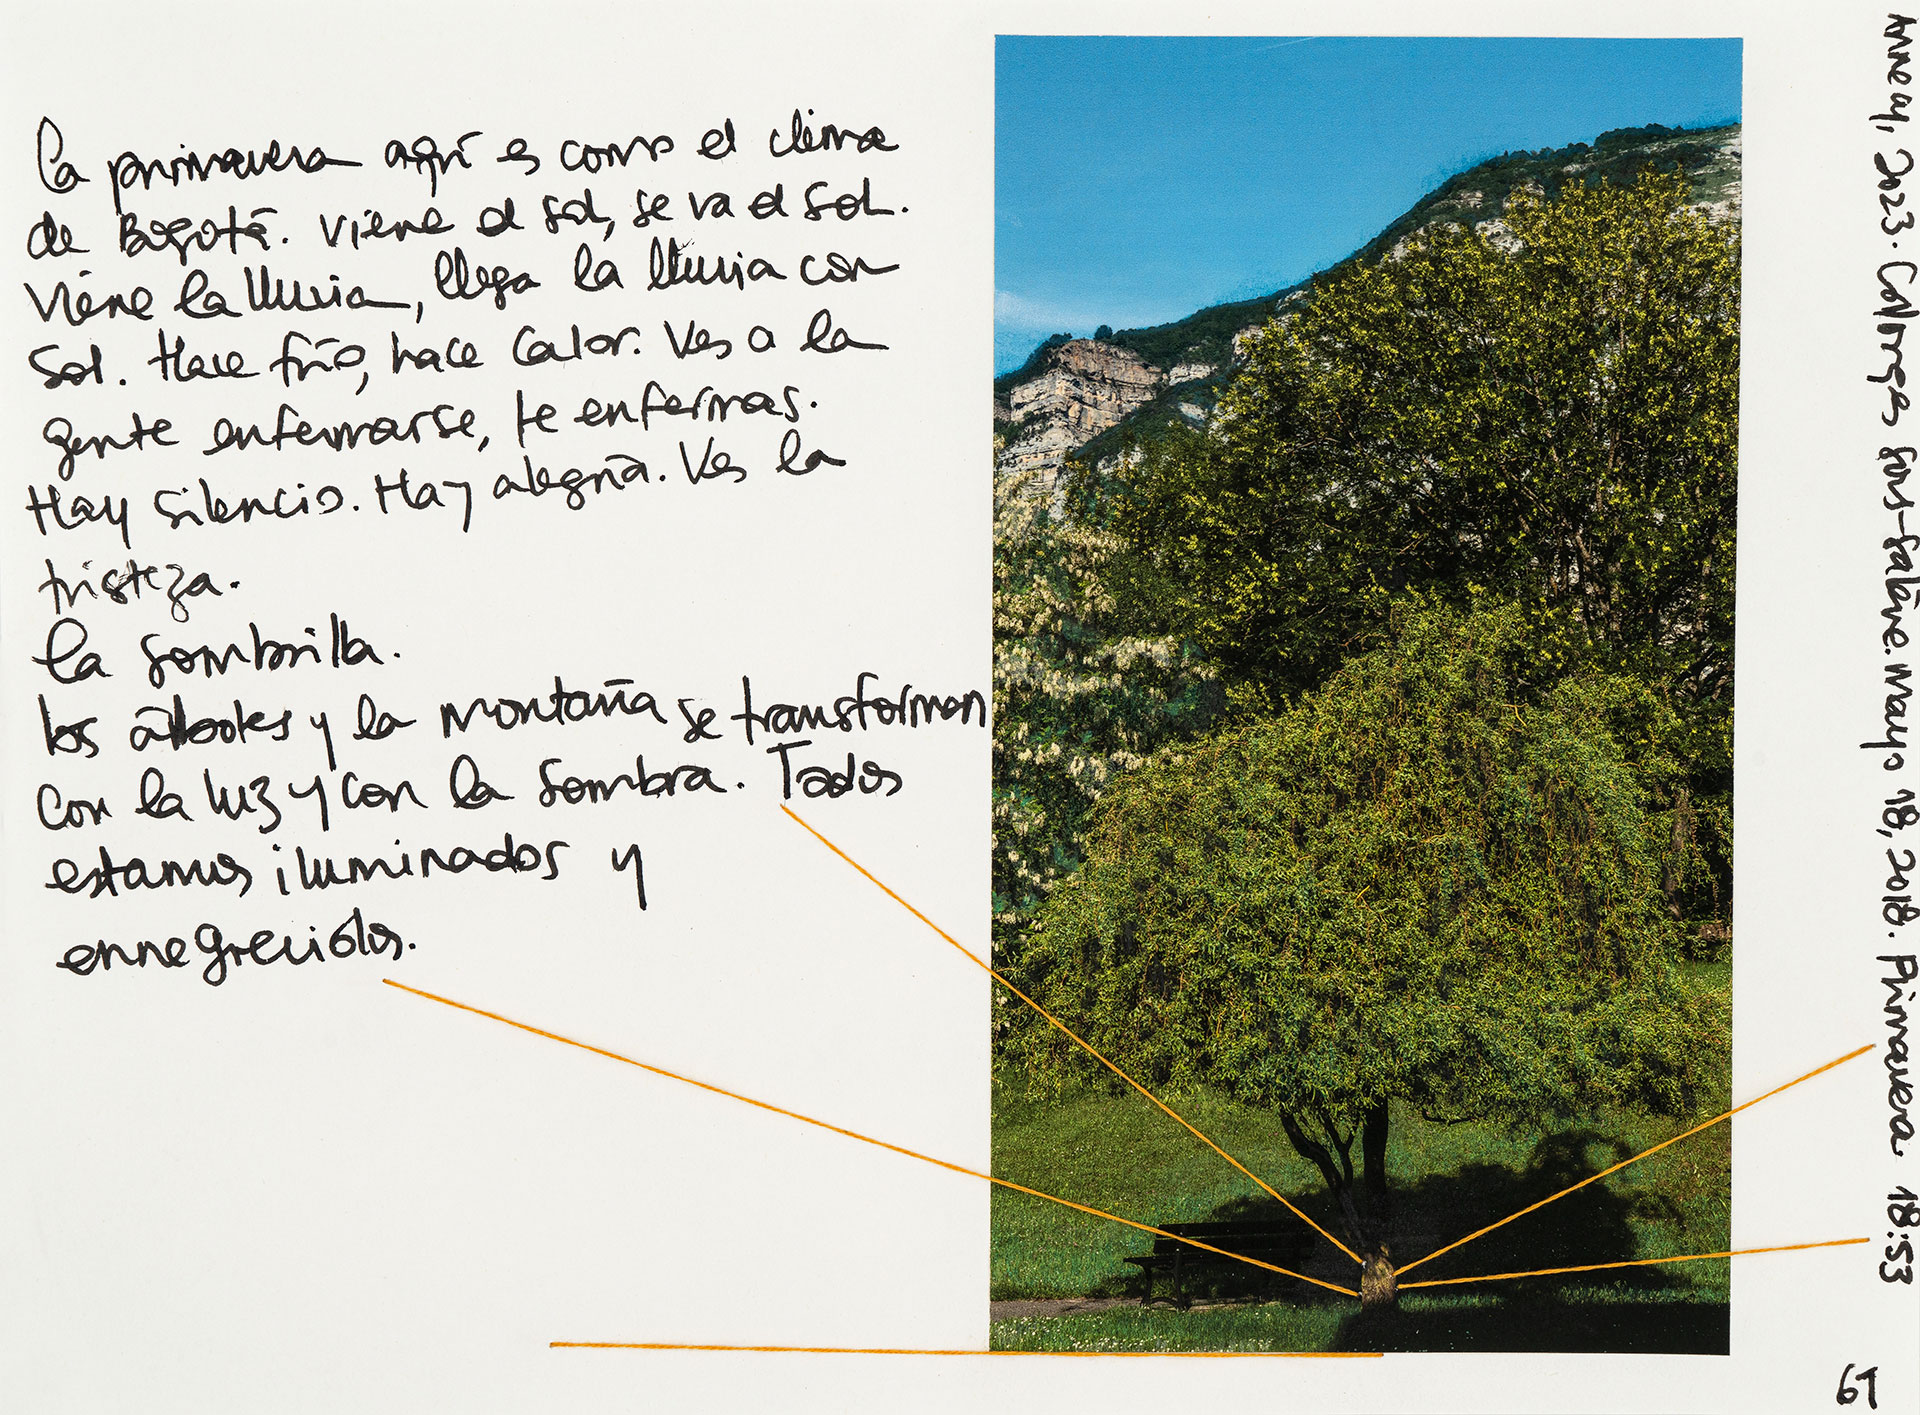 La primavera aquí es como el clima
de Bogotá. Viene el sol, se va el sol.
Viene la lluvia, llega la lluvia con
sol. Hace frío, hace calor. Ves a la
gente enfermarse, te enfermas.
Hay silencio. Hay alegría. Ves la
tristeza.
La sombrilla.
Los árboles y la montaña se transforman
con la luz y con la sombra. Todos
estamos iluminados y
ennegrecidos.
Annecy, 2023. Collonges sous-Salève. Mayo 18, 2018. Primavera 18:53
61